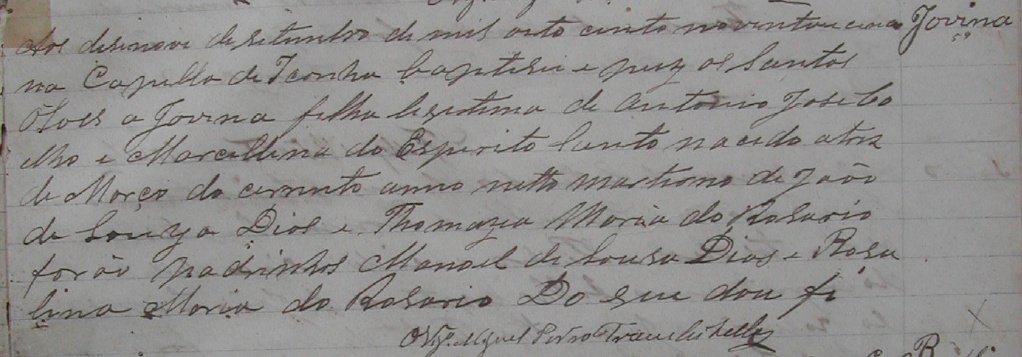 Aos desenove de setembro de mil oito cento noventa e cinco Jovina
na Capella de Iconha baptisei e puz os Santos
Oloes a Jovina filha legitima de Antonio José Co
elho e Marcellina do Espirito Santo nacido a tres
de Março do corrente anno netto martiano de João
de Souza Dios e Thomazia Maria do Rosario
forão padrinhos Manoel de Sousa Dias e Rosa
lina Maria do Rosario Do que dou fé
Miguel